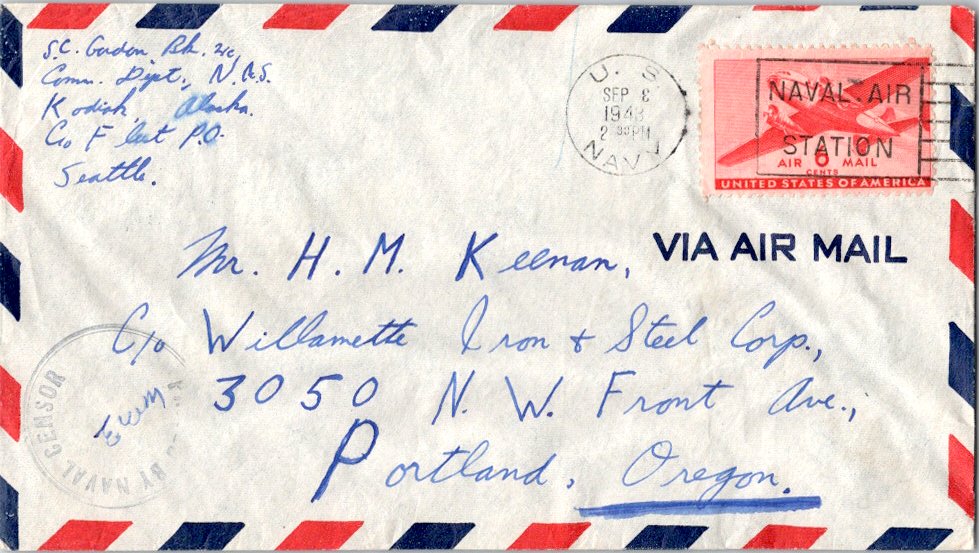 S.C. Gordon Bk. 2/c,
Comm. Dept., N.A.S.
Kodiak, Alaska.
C/o Fleet P.O.
Seattle.
U. S.
SEP 8
1943
2 30 PM
NAVY
NAVAL AIR
STATION
AIR 6 MAIL
CENTS
UNITED STATES OF AMERICA
VIA AIR MAIL
Mr. H. M. Keenan,
C/o Willamette Iron & Steel Corp.,
3050 N. W. Front Ave.,
Portland, Oregon.
BY NAVAL CENSOR